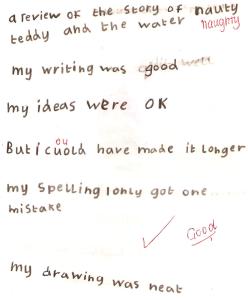 a review of the story of nauty
teddy and the water naughty
my writing was good
my ideas were OK
ou
But i cuold have made it longer
my spelling I only got one
mistake
Good
my drawing was neat